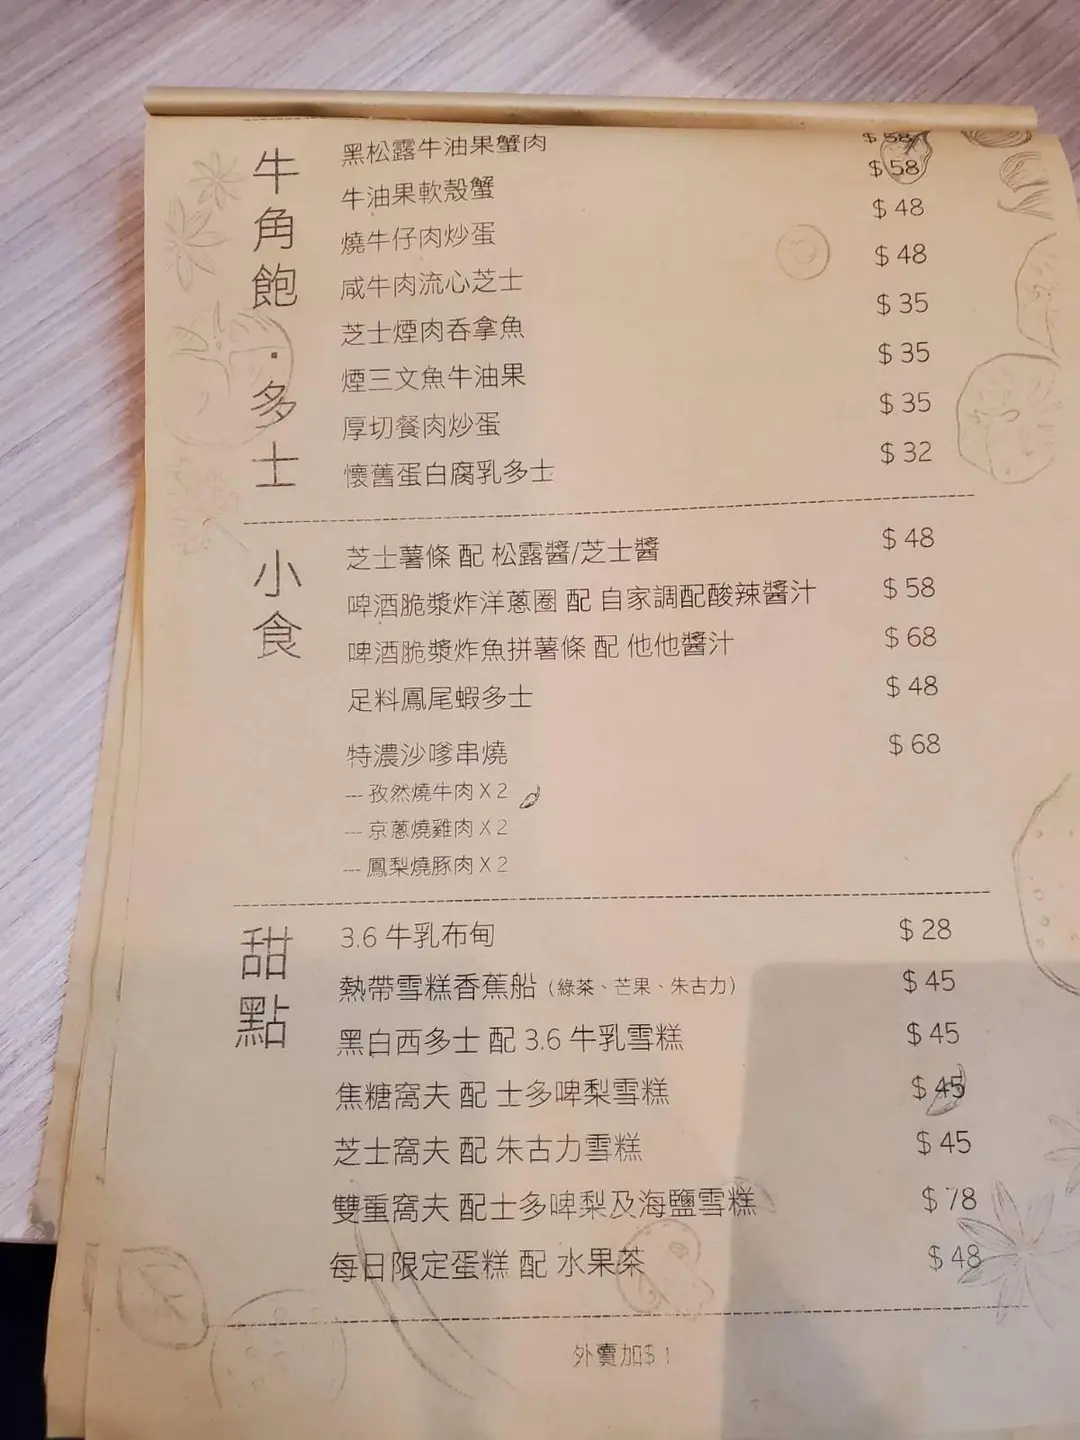 牛角飽·多士
黑松露牛油果蟹肉 $58
牛油果軟殼蟹 $58
燒牛仔肉炒蛋 $48
咸牛肉流心芝士 $48
芝士煙肉吞拿魚 $35
煙三文魚牛油果 $35
厚切餐肉炒蛋 $35
懷舊蛋白腐乳多士 $32
小食
芝士薯條 配 松露醬/芝士醬 $48
啤酒脆漿炸洋蔥圈 配 自家調配酸辣醬汁 $58
啤酒脆漿炸魚拼薯條 配 他他醬汁 $68
足料鳳尾蝦多士 $48
特濃沙嗲串燒 $68
--- 孜然燒牛肉 X 2
--- 京蔥燒雞肉 X 2
--- 鳳梨燒豚肉 X 2
甜點
3.6 牛乳布甸 $28
熱帶雪糕香蕉船 (綠茶、芒果、朱古力) $45
黑白西多士 配 3.6 牛乳雪糕 $45
焦糖窩夫 配 士多啤梨雪糕 $45
芝士窩夫 配 朱古力雪糕 $45
雙重窩夫 配士多啤梨及海鹽雪糕 $78
每日限定蛋糕 配 水果茶 $48
外賣加$1